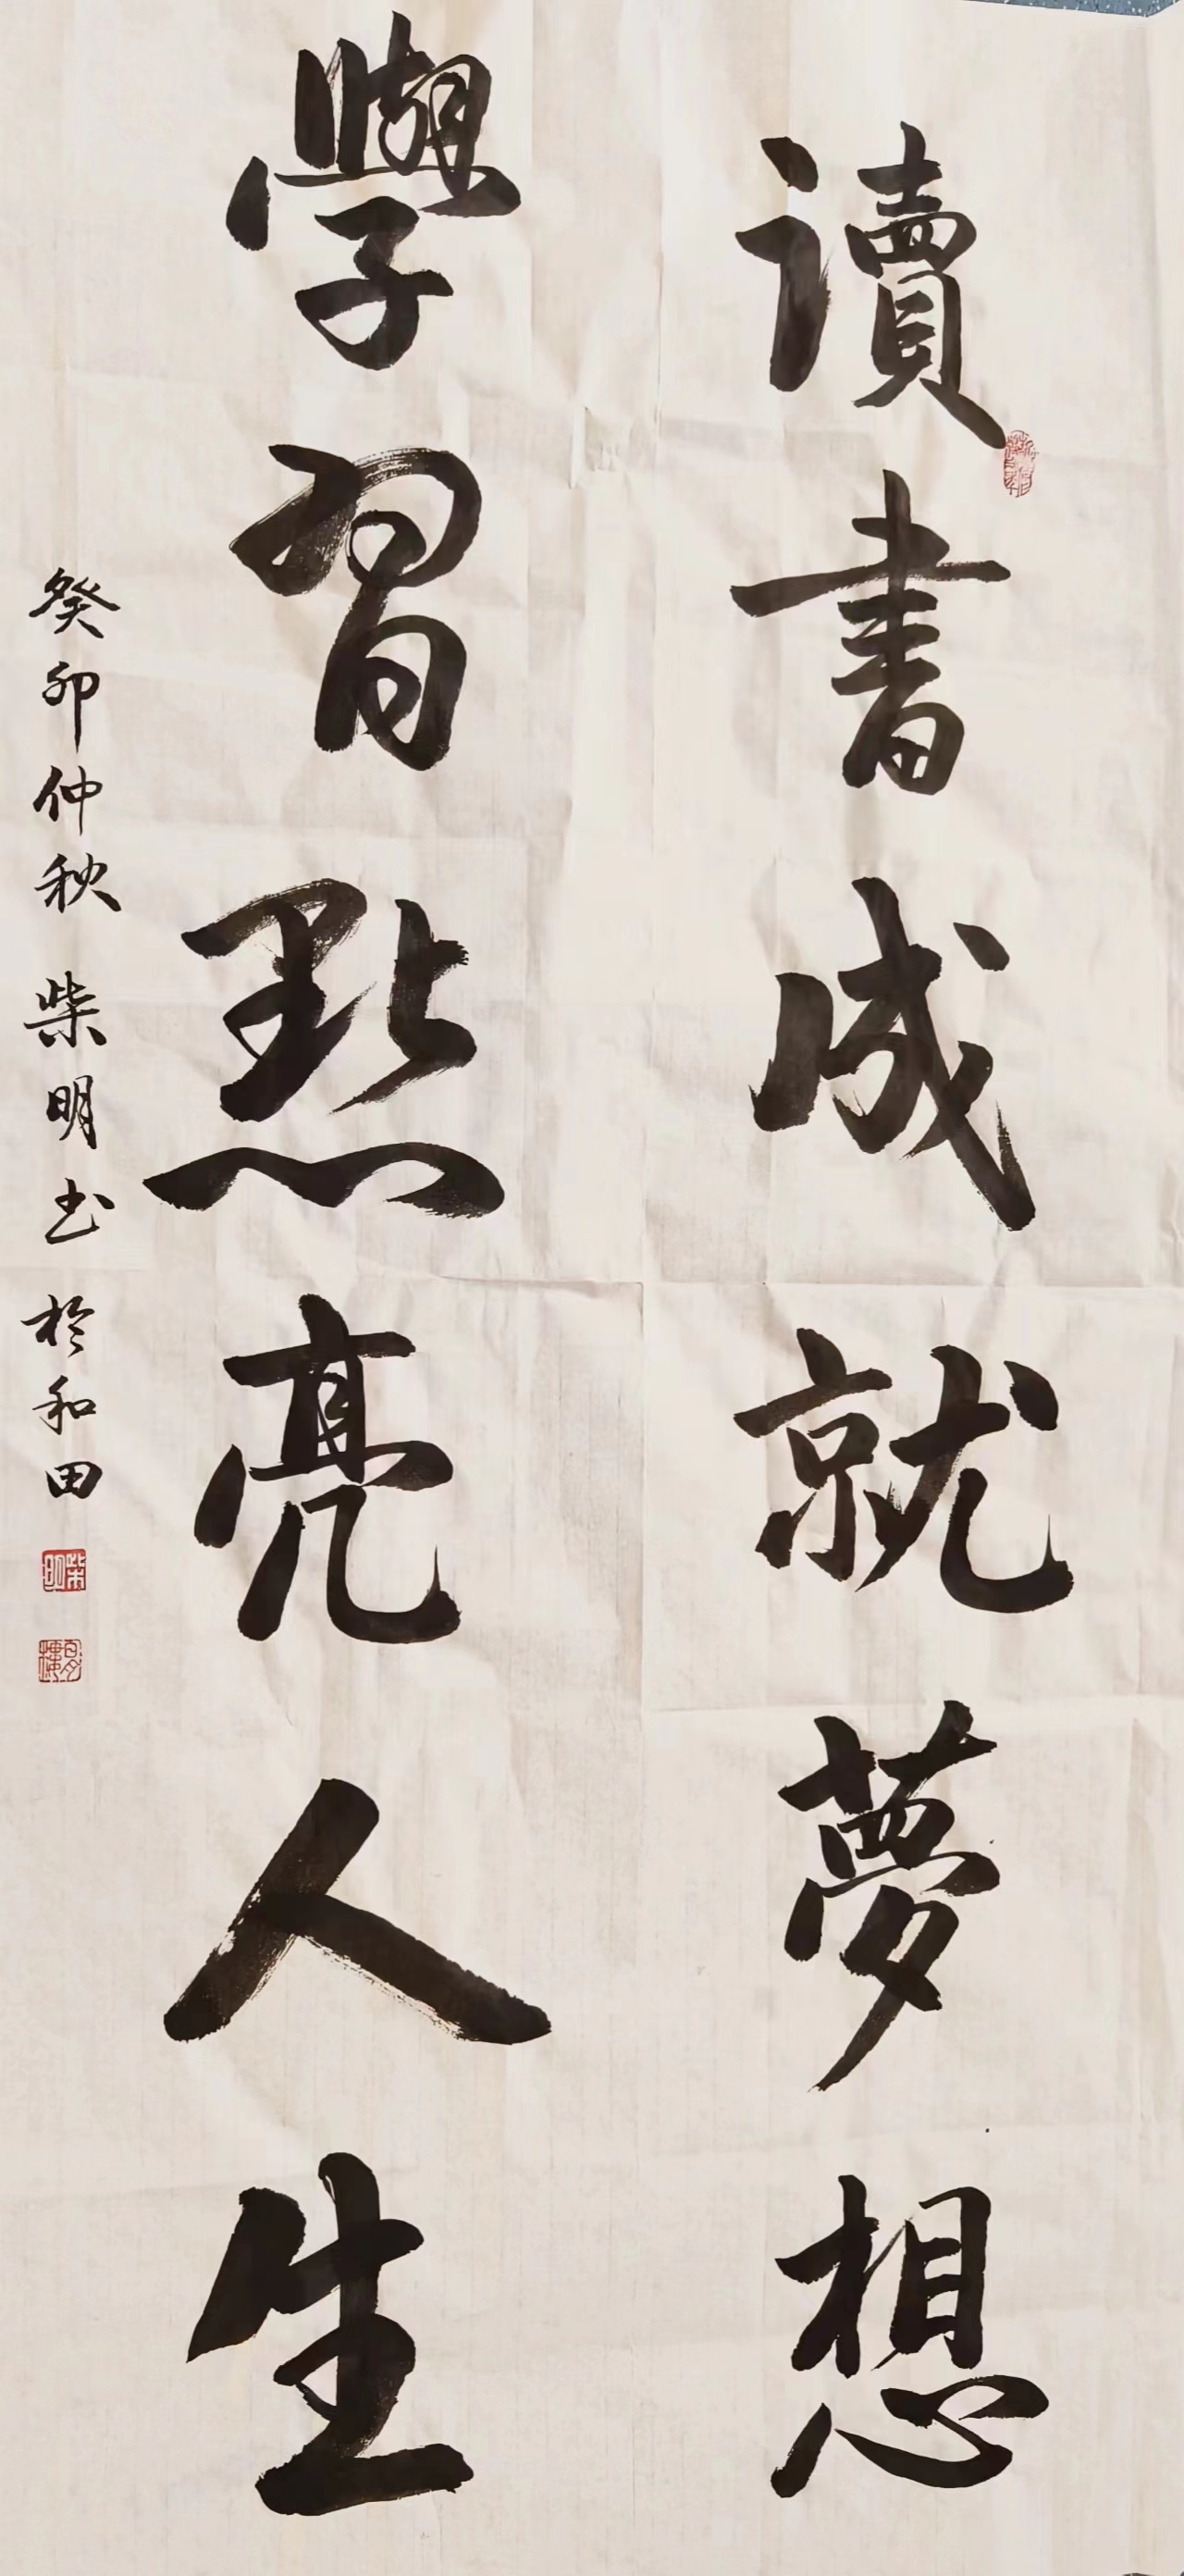 讀書成就夢想
學習點亮人生
癸卯仲秋 柴明书於和田
柴明